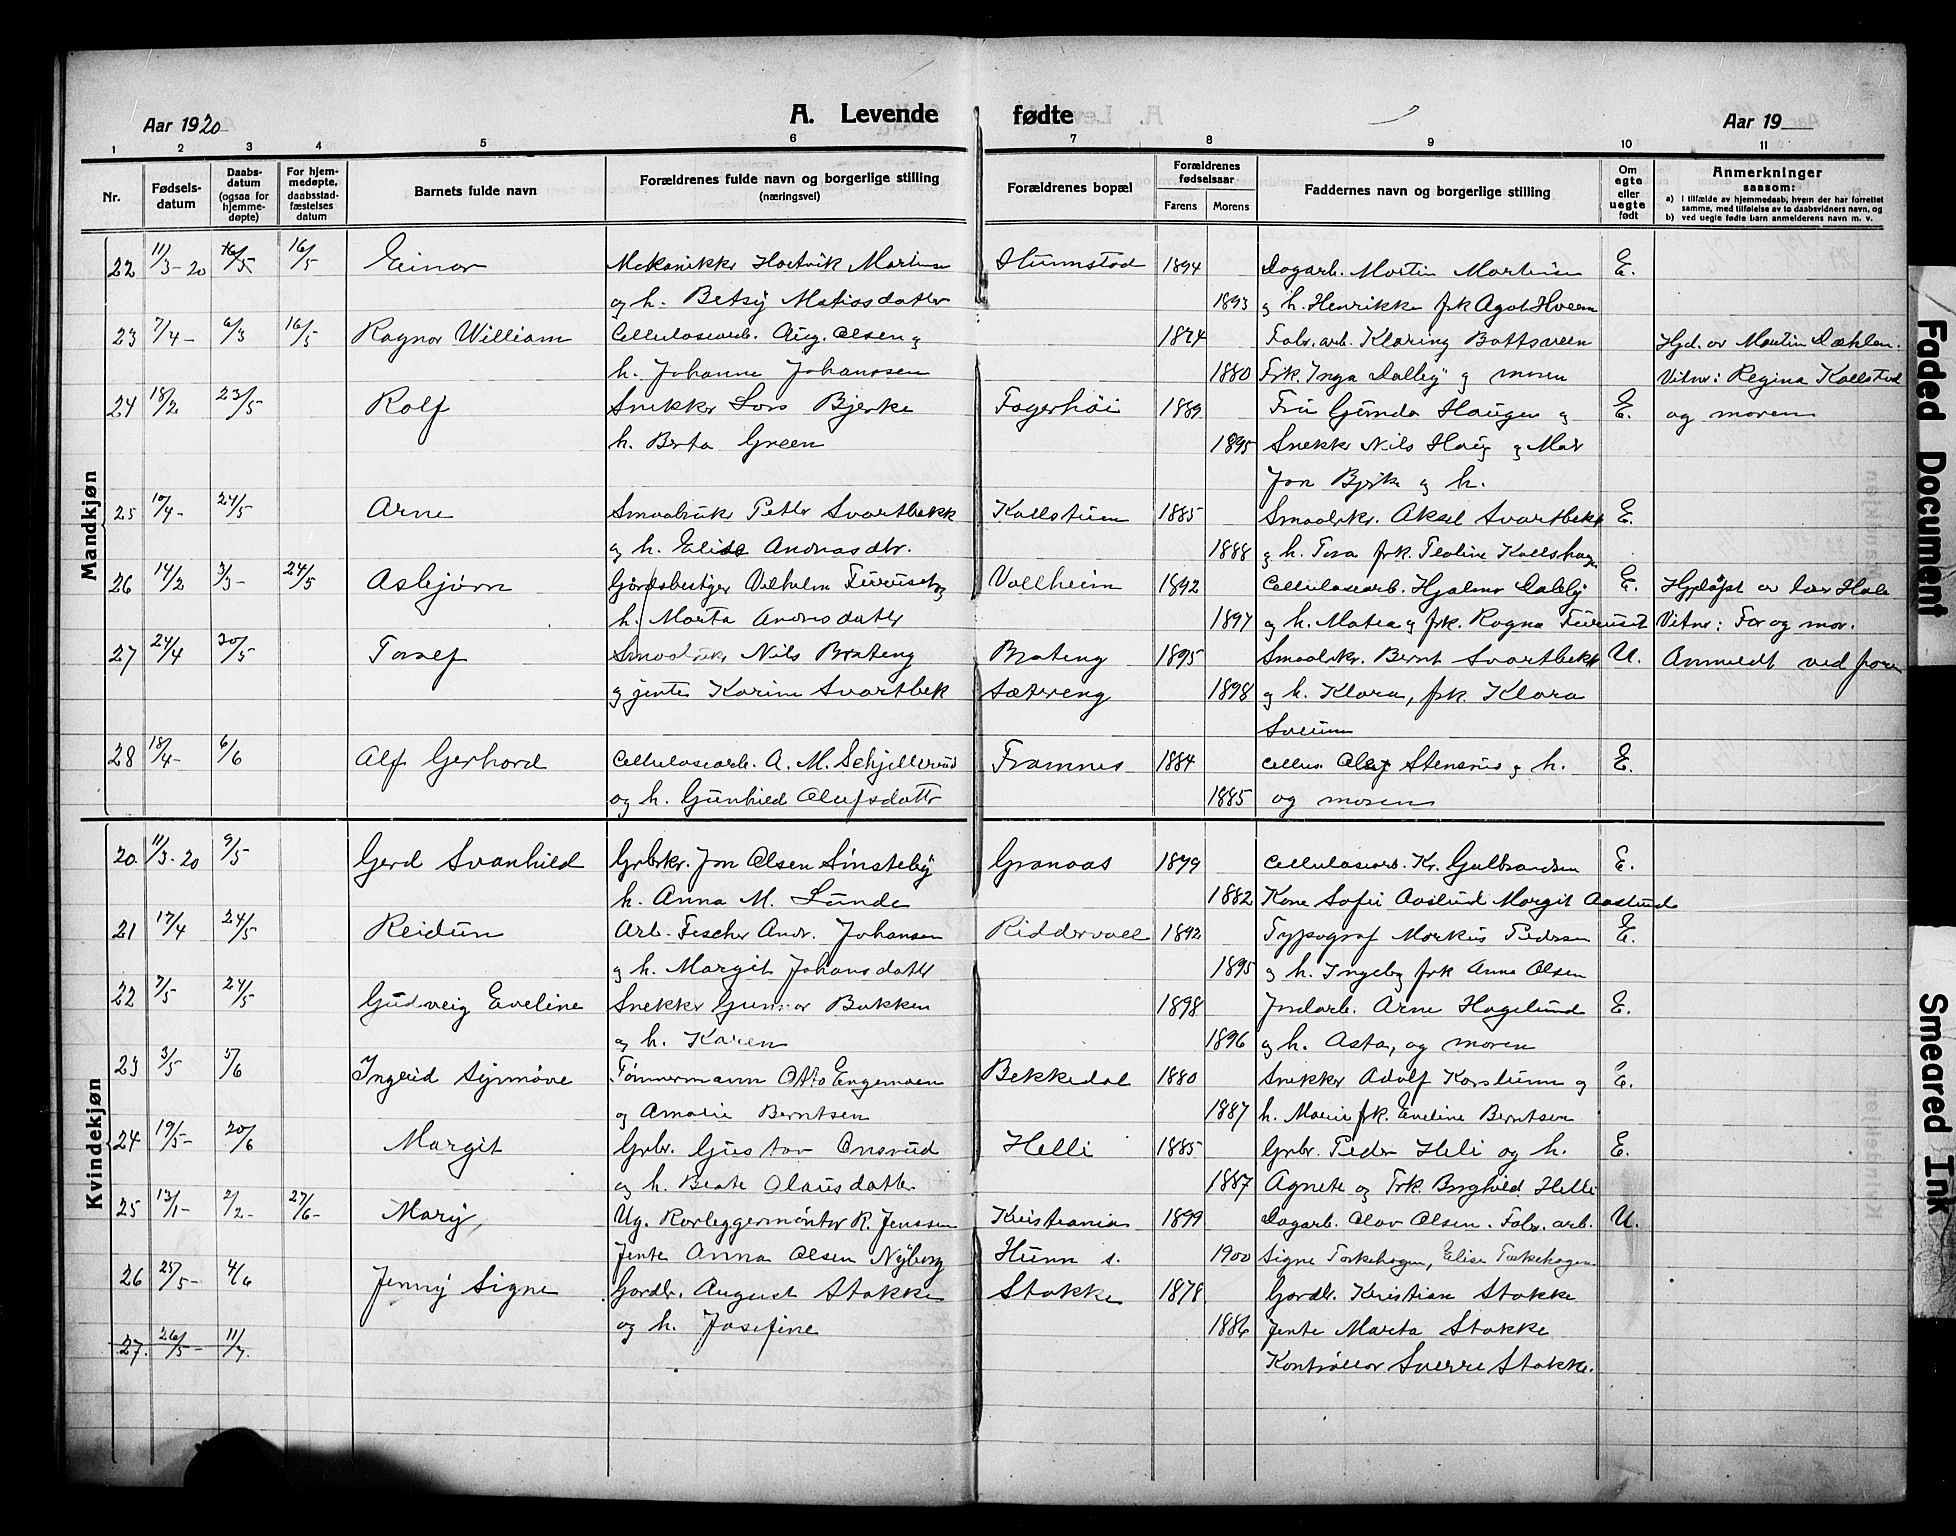 A. Levende fødte
Aar 1920
Aar 19
1 2 3 4 5 6 7 8 9 10 11
Nr.
Fødsels-
datum
Daabs-
datum
(ogsaa for
hjemme-
døpte)
For hjem-
medøpte,
daabsstad-
fæstelses
datum
Barnets fulde navn
Forældrenes fulde navn og borgerlige stilling
(næringsvei)
Forældrenes bopæl
Forældrenes
fødselsaar
Farens Morens
Faddernes navn og borgerlige stilling
Om
egte
eller
uegte
født
Anmerkninger
saasom:
a) i tilfælde av hjemmedaab, hvem der har forrettet
samme, med tilføielse av to daabsvidners navn, og
b) ved uegte fødte barn anmelderens navn m. v.
Mandkjøn
22 11/3-20 16/5 16/5 Einar Mekanikker Martinsen 1894 Dagarb. Martin Martinsen E.
og h. Betsy Matiasdatter 1893 og h. Henrikke frk Agot Hveem
23 7/4- 6/3 16/5 Ragnar William Cellulosearb. Aug. Olsen og 1874 Fabr. arb. Klaring Battsveen Hjd. av Martin Dæhlen.
h. Johanne Johanssen 1880 Frk. Inga Dalby og moren Vitner: Regina Kallstad
24 18/2 23/5 Rolf Snekker Lars Bjerke Fagerhøi 1889 Fru Gunda Haugen og E. og moren
h. Berta Green 1895 Snekker Nils Haug og
Jon Bjerke og h.
25 10/4- 24/5 Arne Smaabruker Petter Svartbekk Kallstuen 1885 Smaabrkr. Aksel Svartbekk E.
og h. Elise Andreasdtr. 1888 og h. Tora frk. Teoline Kallshagen
26 14/2 3/3- 24/5 Asbjørn Gårdsbestyrer Vilhelm Furuset og Vollheim 1892 Cellulosearb. Hjalmar Dalby E. Hjdøpt av
h. Marta Andreasdatter 1897 og h. Matea og frk. Ragna Furuset Vitner: Far og mor.
27 24/4 30/5 Toralf Smaabruker Nils Brateng Brateng 1895 Smaabrkr. Bernt Svartbekk U. Anmeldt ved faren
og jente Karine Svartbek Sætereng 1898 og h. Klara, frk. Klara
Sveum
28 18/4- 6/6 Alf Gerhard Cellulosearb. A. M. Schjellerud Framnes 1884 Cellus. Olaf Stensrus og h. E.
og h. Gunhild Olufsdattr 1885 og moren
Kvindekjøn
20 11/3-20 9/5 Gerd Svanhild Grbrkr. Jon Olsen Sinsteby Granaas 1879 Cellulosearb. Kr. Gulbrandsen E.
h. Anna M. Lunde 1882 Kone Sofie Aaslund Margit Aaslund
21 17/4 24/5 Reidun Arb. Fischer Andr. Johansen Riddervoll 1892 Typograf Markus Pedersen E.
og h. Margit Johansdatter 1895 og h. Ingeborg frk Anna Olsen
22 7/5 24/5 Gudveig Eveline Snekker Gunnar Bakken 1898 Jordarb. Arne Hagelund E.
og h. Karen 1896 og h. Asta, og moren
23 3/5 5/6 Ingrid Synnøve Tømmermann Otto Engemoen Bekkedal 1880 Snekker Adolf Karstuen og E.
og Amalie Berntsen 1887 h. Marie frk. Eveline Berntsen
24 19/5- 20/6 Margit Grbr. Gustav Onsrud Helli 1885 Grbr. Peder Heli og h. E.
og h. Beate Olausdatter 1887 Agnete og Frk. Borghild Helli
25 13/1- 2/2- 27/6- Mary Ug. Rørleggermontør R. Jenssen Kristiania 1899 Dagarb. Olav Olsen. Fabr. arb. U.
Jente Anna Olsen Nyborg Hunn s. 1900 Signe Torkehagen, Elise Torkehagen
26 25/5- 4/6 Jenny Signe Gardbr. August Stokke Stokke 1878 Gardbr. Kristian Stokke
og h. Josefine 1886 Jente Marta Stokke
27. 26/5- 11/7. Kontrollør Sverre Stokke.
Faded Document
Smeared Ink